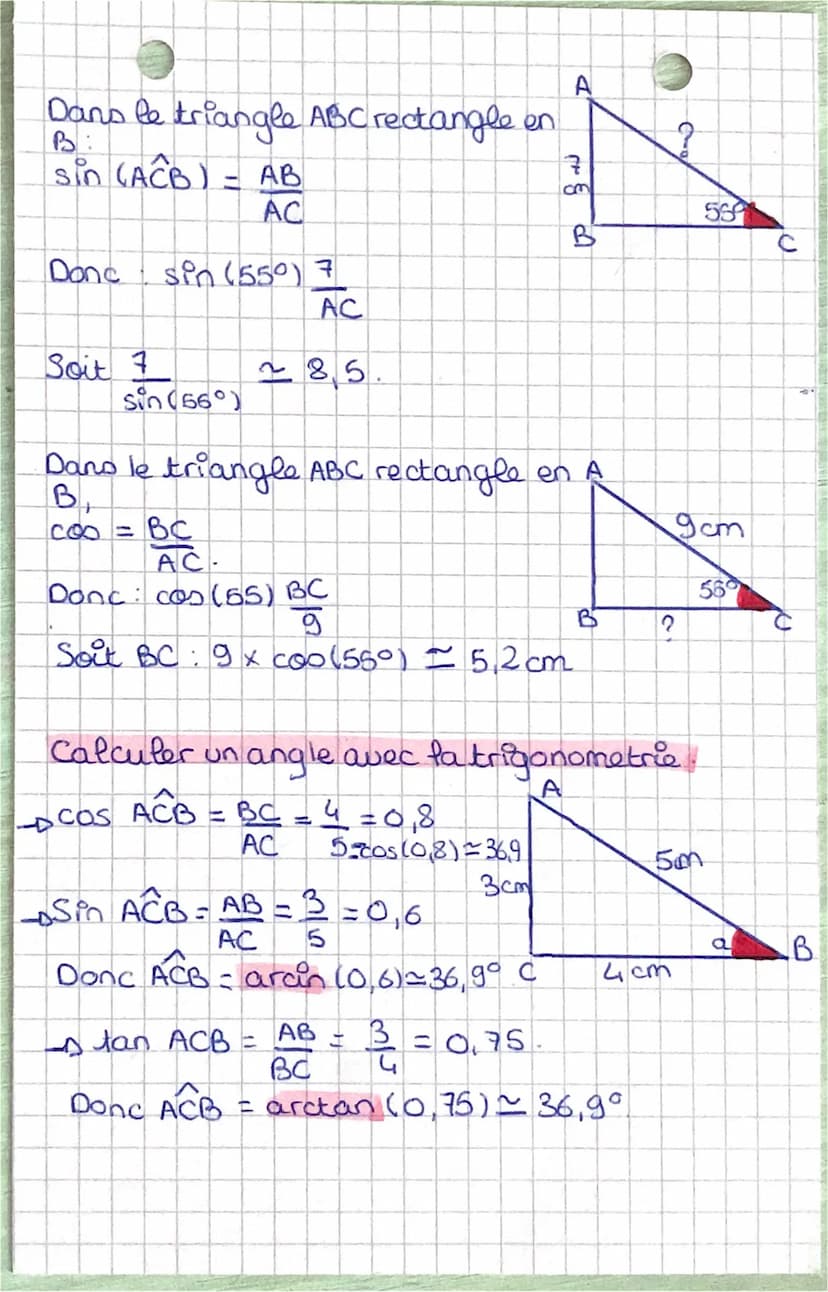 Dans le triangle ABC rectangle en
B :
sin (AĈB) = AB
AC
A
?
7
cm
55°
B
C
Donc : sin (55°) 7
AC
Soit 7 ≃ 8,5.
sin (55°)
Dans le triangle ABC rectangle en
B,
cos = BC
AC.
Donc : cos (55) BC
9
Soit BC : 9 x cos (55°) ≃ 5,2 cm
A
9 cm
55°
B
?
C
Calculer un angle avec la trigonometrie.
→ cos AĈB = BC = 4 = 0,8
AC 5 = cos (0,8) ≃ 36,9
→ Sin AĈB = AB = 3 = 0,6
AC 5
Donc AĈB = arcin (0,6) ≃ 36,9°
A
5m
3cm
a
B
C
4 cm
→ tan ACB = AB = 3 = 0,75.
BC 4
Donc AĈB = arctan (0,75) ≃ 36,9°